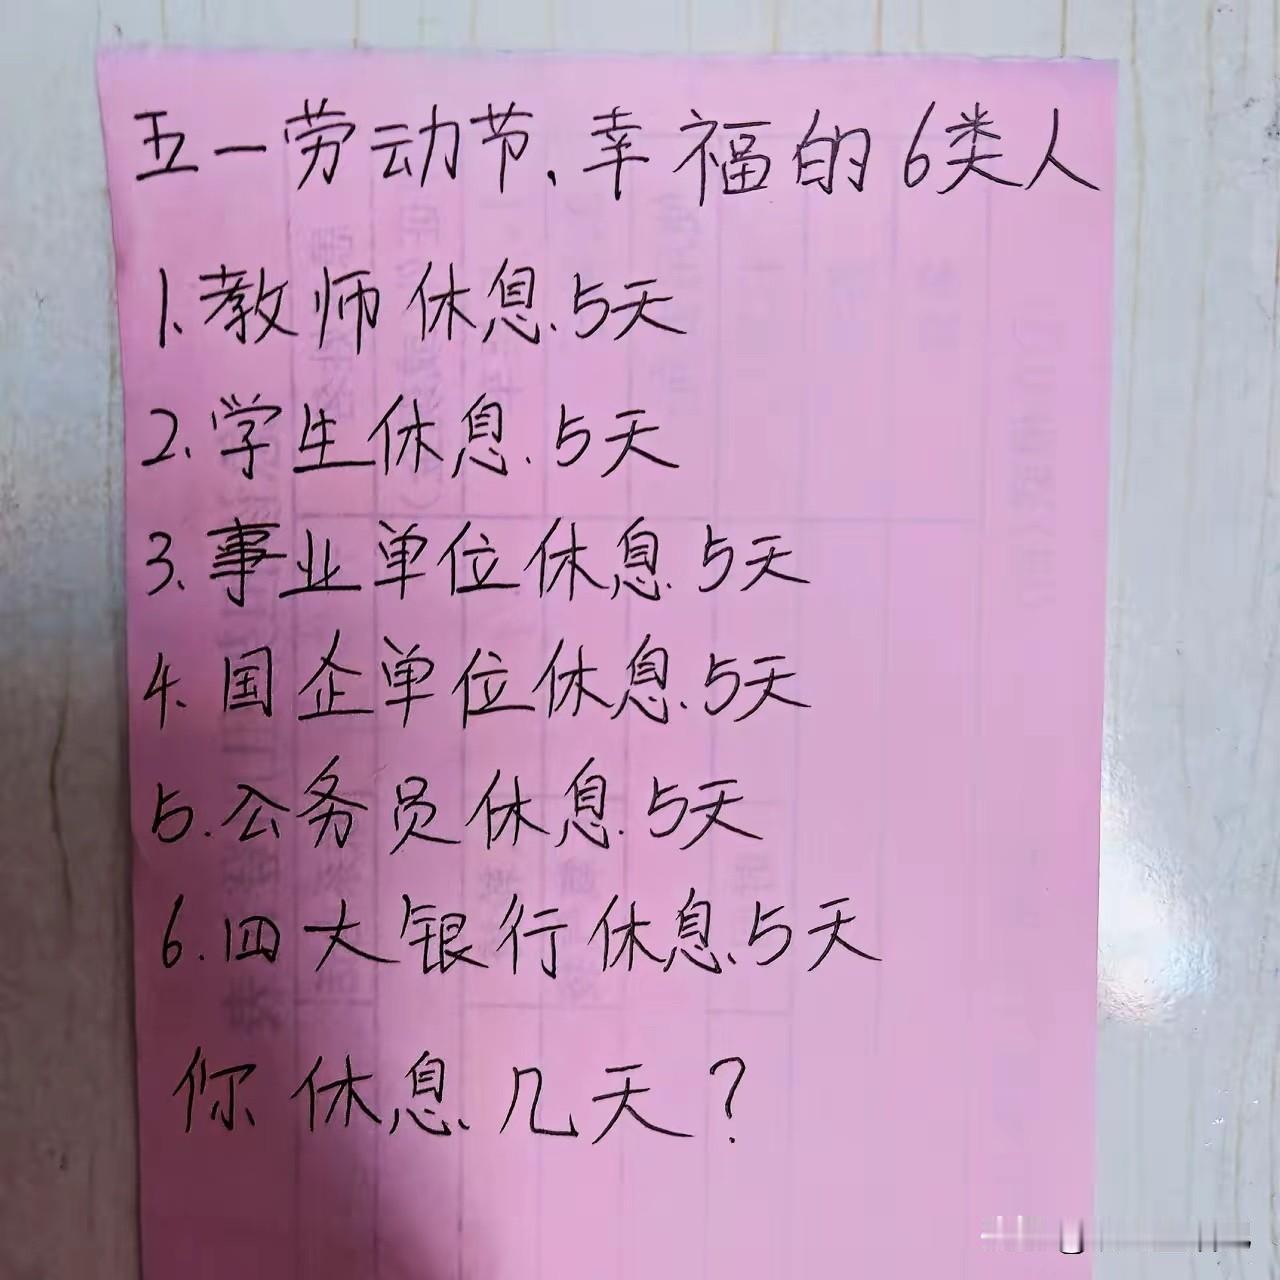 五一劳动节、幸福的6类人
1、教师休息、5天
2、学生休息、5天
3、事业单位休息、5天
4、国企单位休息、5天
5、公务员休息、5天
6、四大银行休息、5天
你休息、几天?